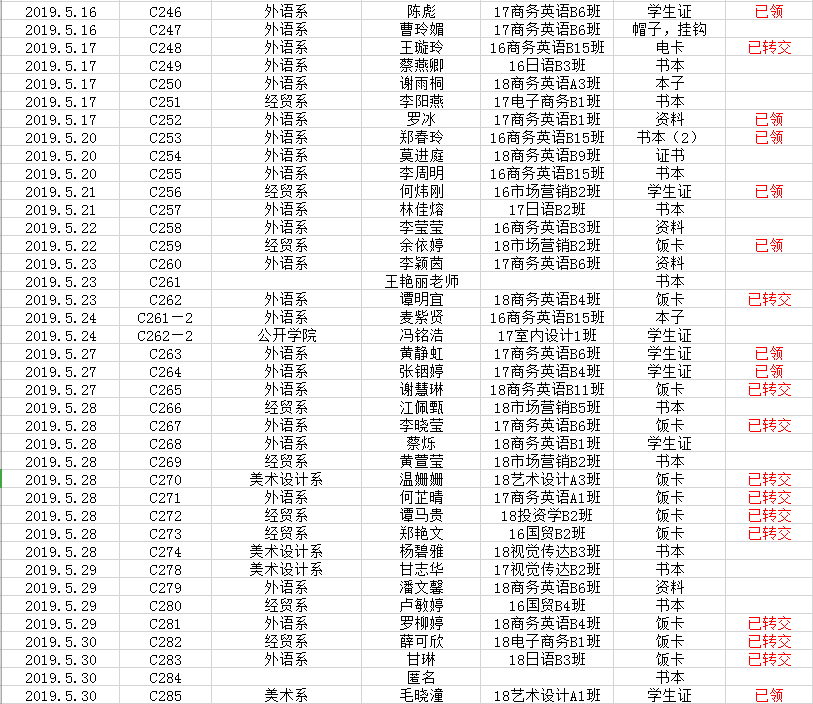 2019.5.16 C246 外语系 陈彪 17商务英语B6班 学生证 已领
2019.5.16 C247 外语系 曹玲媚 17商务英语B6班 帽子，挂钩
2019.5.17 C248 外语系 王璇玲 16商务英语B15班 电卡 已转交
2019.5.17 C249 外语系 蔡燕卿 16日语B3班 书本
2019.5.17 C250 外语系 谢雨桐 18商务英语A3班 本子
2019.5.17 C251 经贸系 李阳燕 17电子商务B1班 书本
2019.5.17 C252 外语系 罗冰 17商务英语B1班 资料 已领
2019.5.20 C253 外语系 郑春玲 16商务英语B15班 书本（2） 已领
2019.5.20 C254 外语系 莫进庭 18商务英语B9班 证书
2019.5.20 C255 外语系 李周明 16商务英语B15班 书本
2019.5.21 C256 经贸系 何炜刚 16市场营销B2班 学生证 已领
2019.5.21 C257 外语系 林佳熔 17日语B2班 书本
2019.5.22 C258 外语系 李莹莹 16商务英语B3班 资料
2019.5.22 C259 经贸系 余依婷 18市场营销B2班 饭卡 已领
2019.5.23 C260 外语系 李颖茵 17商务英语B6班 资料
2019.5.23 C261 王艳丽老师 书本
2019.5.23 C262 外语系 谭明宜 18商务英语B4班 饭卡 已转交
2019.5.24 C261－2 外语系 麦紫贤 16商务英语B15班 本子
2019.5.24 C262－2 公开学院 冯铭浩 17室内设计1班 学生证
2019.5.27 C263 外语系 黄静虹 17商务英语B6班 学生证 已领
2019.5.27 C264 外语系 张铟婷 17商务英语B4班 学生证 已领
2019.5.27 C265 外语系 谢慧琳 18商务英语B11班 饭卡 已转交
2019.5.28 C266 经贸系 江佩甄 18市场营销B5班 书本
2019.5.28 C267 外语系 李晓莹 17商务英语B6班 饭卡 已转交
2019.5.28 C268 外语系 蔡烁 18商务英语B1班 学生证
2019.5.28 C269 经贸系 黄萱莹 18市场营销B2班 书本
2019.5.28 C270 美术设计系 温姗姗 18艺术设计A3班 饭卡 已转交
2019.5.28 C271 外语系 何芷晴 17商务英语A1班 饭卡 已转交
2019.5.28 C272 经贸系 谭马贵 18投资学B2班 饭卡 已转交
2019.5.28 C273 经贸系 郑艳文 16国贸B2班 饭卡 已转交
2019.5.28 C274 美术设计系 杨碧雅 18视觉传达B3班 书本
2019.5.29 C278 美术设计系 甘志华 17视觉传达B2班 书本
2019.5.29 C279 外语系 潘文馨 18商务英语B6班 资料
2019.5.29 C280 经贸系 卢敏婷 16国贸B4班 书本
2019.5.29 C281 外语系 罗柳婷 18商务英语B4班 饭卡 已转交
2019.5.30 C282 经贸系 薛可欣 18电子商务B1班 饭卡 已转交
2019.5.30 C283 外语系 甘琳 18日语B3班 饭卡 已转交
2019.5.30 C284 匿名 书本
2019.5.30 C285 美术系 毛晓潼 18艺术设计A1班 学生证 已领